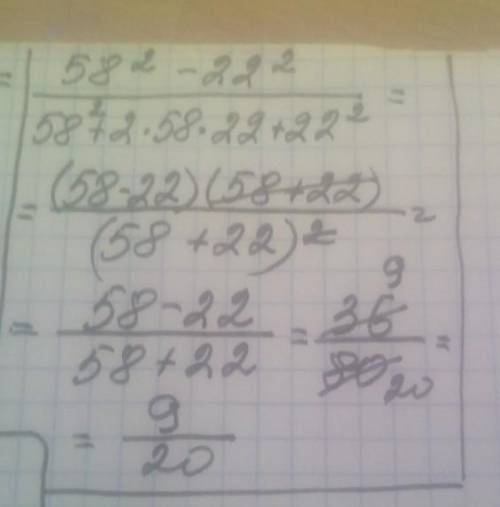 = 58² - 22² / 58² + 2·58·22 + 22² =
= (58-22)(58+22) / (58+22)² =
= 58-22 / 58+22 = 36 9 / 80 20 =
= 9 / 20